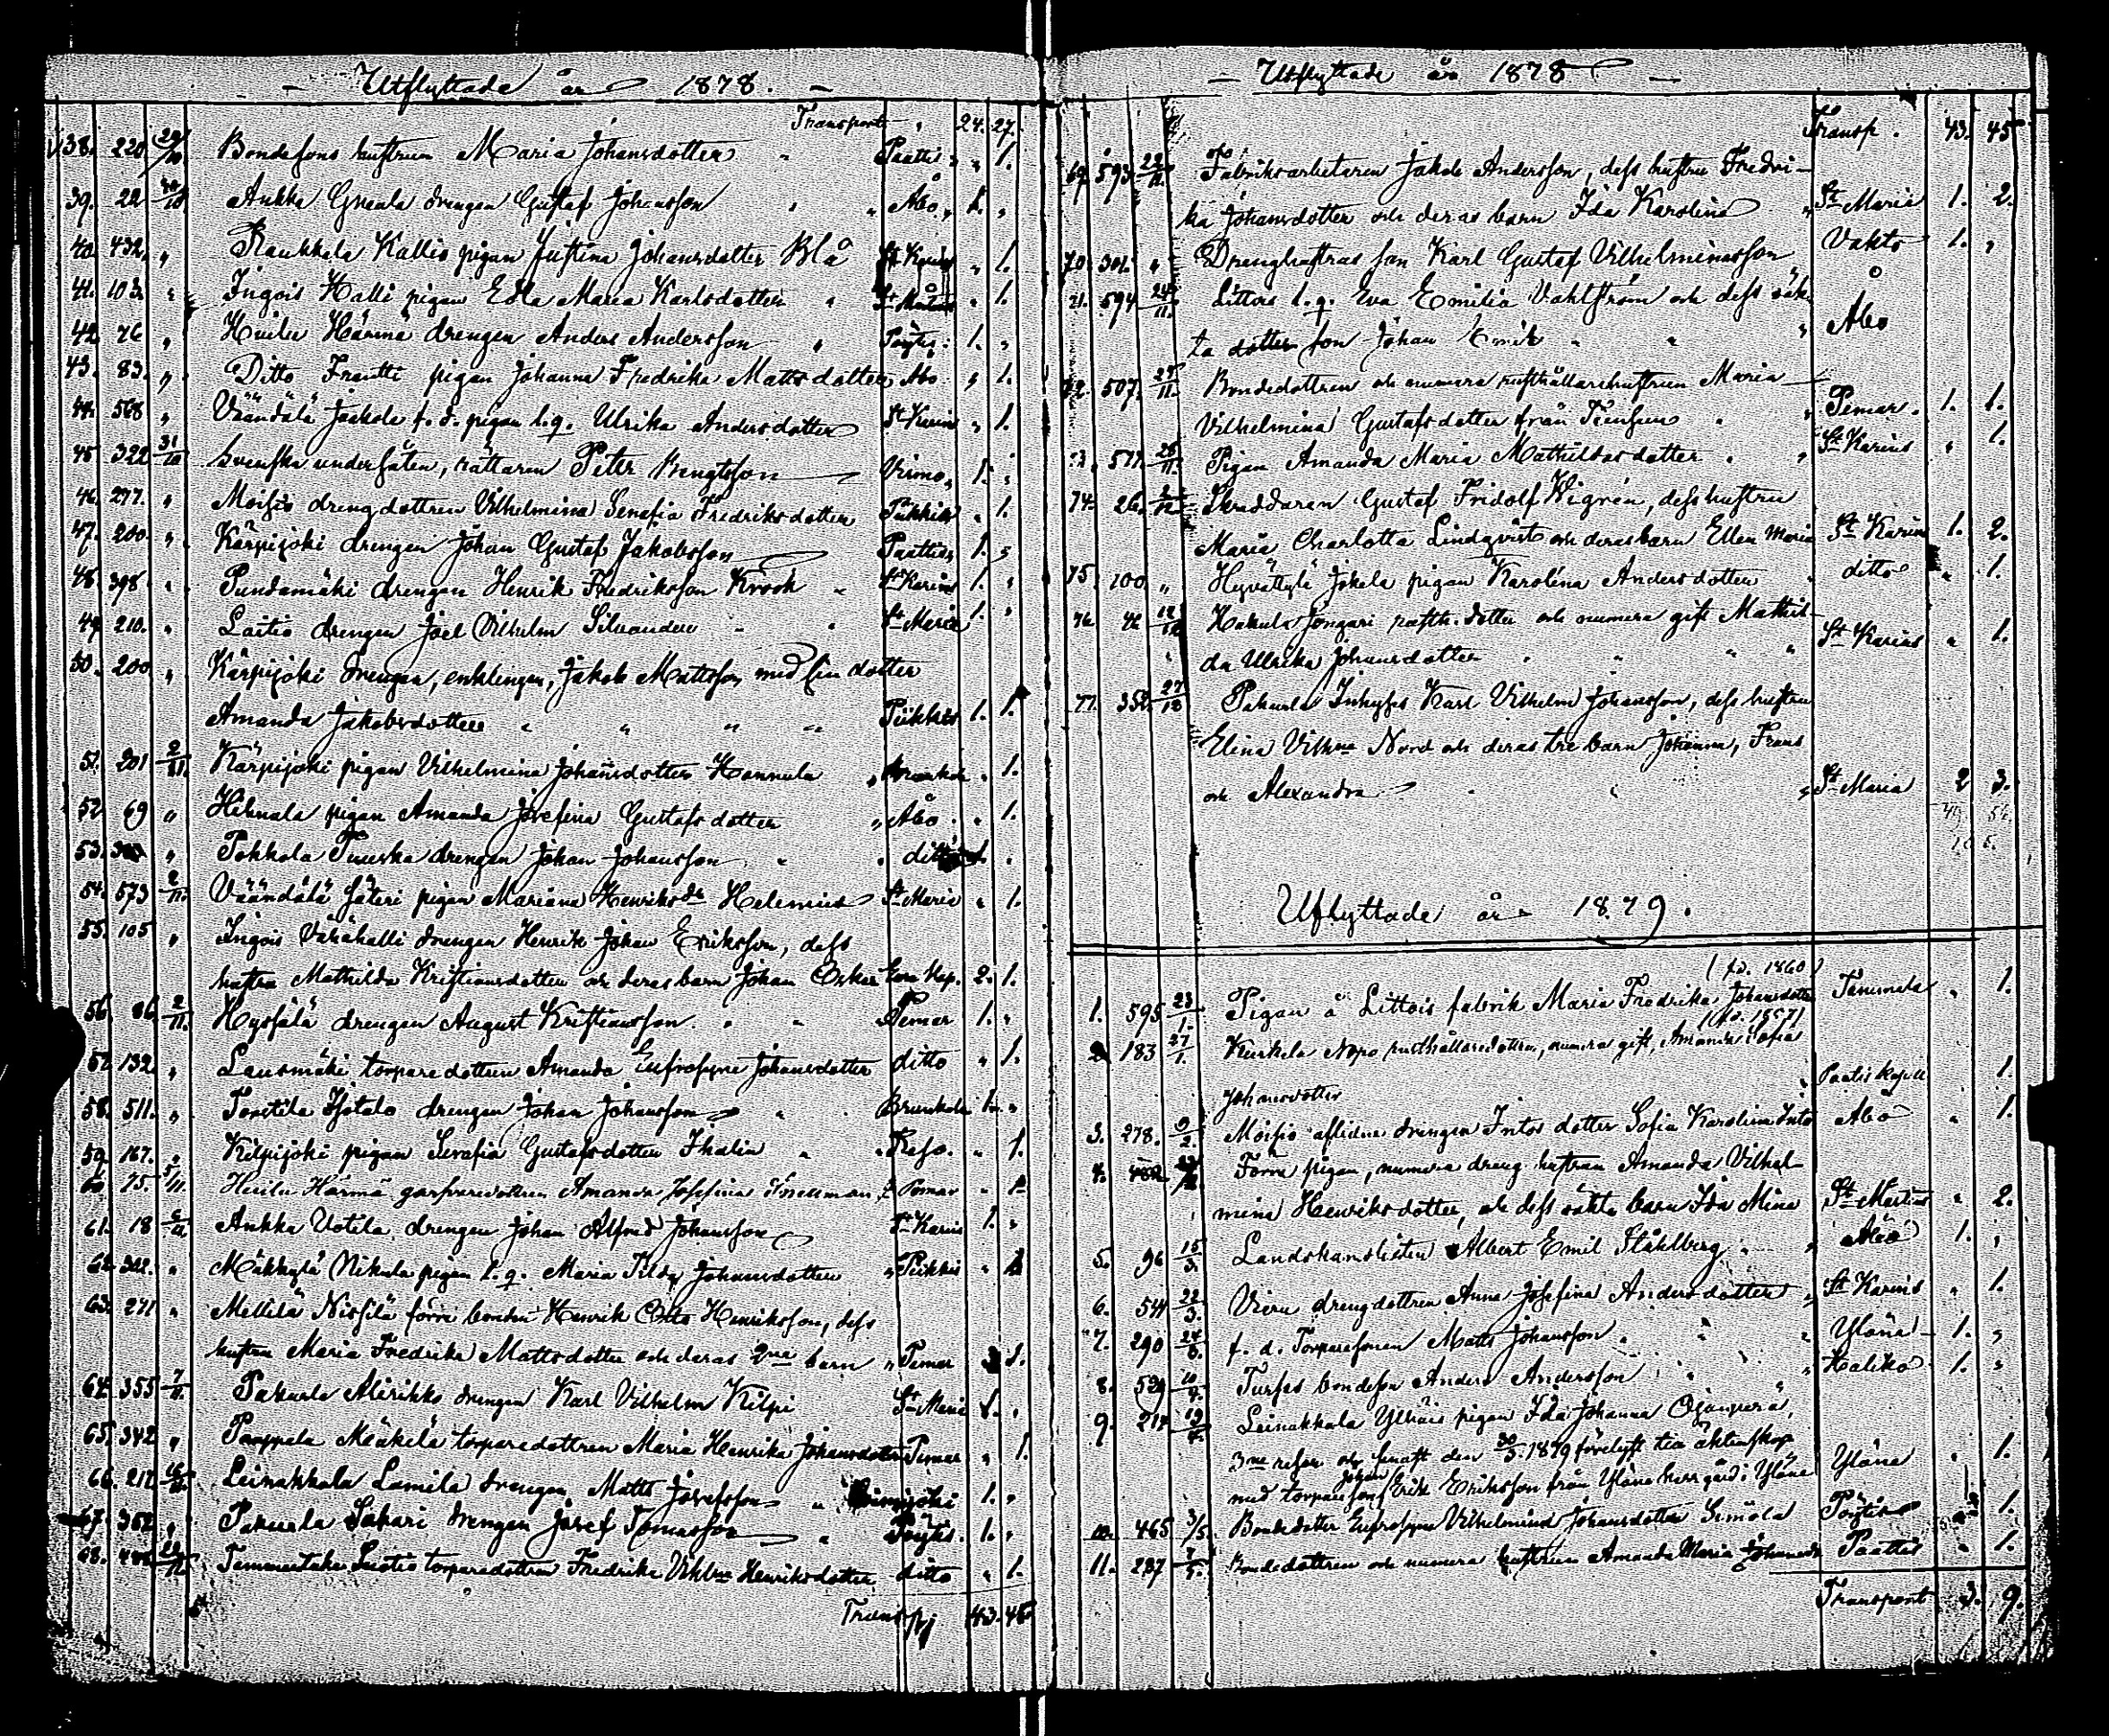 Utflyttade år 1878.
Transport 24. 27.
38. 220 29/10 Bondesons hustrun Maria Johansdotter Paattis „ 1.
39. 22 30/10 Aukka Gunula drengen Gustaf Johansson Åbo 1. „
40. 432. „ Raukkala Kallis pigan Justina Johansdotter Blå St Karins „ 1.
41. 103. „ Ingois Halli pigan Edla Maria Karlsdotter „ 1.
42. 76 „ Huilu Härmä drengen Anders Andersson Pöytis 1. „
43. 83. „ Ditto Frantti pigan Johanna Fredrika Mattsdotter Åbo „ 1.
44. 568 „ Väändälä Jaakola f. d. pigan l. q. Ulrika Andersdotter St Karins „ 1.
45 322 31/10 Svenska undersåten, rättaren Peter Bengtsson Virmo 1. „
46. 277. „ Moisio drengdottren Vilhelmina Serafia Fredriksdotter Pikkis „ 1.
47. 200. „ Kärpijoki drengen Johan Gustaf Jakobsson Paattis 1. „
48. 398 „ Pundamäki drengen Henrik Fredriksson Krook St Karins 1. „
49 210. „ Laitis drengen Joel Vilhelm Silvander St Maria 1. „
50. 200 „ Kärpijoki drengen, enklingen, Jakob Mattsson med sin dotter
Amanda Jakobsdotter „ „ „ „ Piikkis 1. 1.
51. 201 2/11. Kärpijoki pigan Vilhelmina Johansdotter Hannula „ 1.
52 69 „ Hihnala pigan Amanda Josefina Gustafsdotter „ Åbo „ 1.
53. „ Pokkola Tuuska drengen Johan Johansson ditto
54. 573 2/11. Väändälä Säteri pigan Mariana Henriksdr Helenius St Maria „ 1.
55. 105 „ Ingois Vähähalli drengen Henrik Johan Eriksson, dess
hustru Mathilda Kristiansdotter och deras barn Johan Oskar 2. 1.
56. 86 2/11. Hyssälä drengen August Kristiansson Pemar 1. „
57. 132. „ Lausmäki torparedottren Amanda Eufrosyne Johansdotter ditto „ 1.
58. 511. „ Tortila Isotalo drengen Johan Johansson Brunkala 1. „
59. 167. „ Kilpijoki pigan Serafia Gustafsdotter Thalin Reso. „ 1.
60 75. 5/11. Huilu Härmä Amanda Josefina Pemar „ 1
61. 18 Aukka Uotila drengen Johan Alfred Johansson St Karins 1. „
62. 302. „ Mäkkylä Nikula pigan l. q. Maria Tilda Johansdotter „ Piikkis „ 1
63. 271 „ Mellilä Nissilä förre bonden Henrik Otto Henriksson, dess
hustru Maria Fredrika Mattsdotter och deras 2ne barn „ Pemar
64. 355 7/11. Pakurla Alirikko drengen Karl Vilhelm Kilpi St Maria 1. „
65. 342 „ Paappala Mäkelä torparedottren Maria Henrika Johansdotter Pemar „ 1.
66. 212 Leinakkala Lamila drengen Matts Josefsson 1. „
67. 352 „ Pakurla Sakari drengen Josef Tomasson Pöytis. 1. „
68. Torparedottren Fredrika Vilhna Henriksdotter ditto „ 1.
Transp. 43. 45.
Utflyttade år 1878
Transp. 43. 45
69 593 22/11. Fabriksarbetaren Jakob Andersson, dess hustru Fredri-
ka Johansdotter och deras barn Ida Karolina „ St Maria 1. 2.
70. 301. „ Drenghustrus son Karl Gustaf Vilhelminasson Vahto 1. „
71. 594 24/11. Littois l. q. Eva Emilia Vahlström och dess oäk-
ta dotter son Johan Emil „ „ „ Åbo
72. 507. 27/11. Bondedottren och numera rusthållarehustrun Maria
Vilhelmina Gustafsdotter från „ Pemar. 1. 1.
28/11. Pigan Amanda Maria Mathildasdotter „ St Karins „ 1.
74. 26. Skräddaren Gustaf Fridolf Wigrén, dess hustru
Maria Charlotta Lindqvist och deras barn Ellen Maria St Karins 1. 2.
75. 100 „ Hyvättylä Jokela pigan Karolina Andersdotter ditto „ 1.
76 Hakula Jongari rusth. dotter och numera gift Mathil-
da Ulrika Johansdotter „ „ „ „ St Karins „ 1.
77. 352. 27/12 Pakurla Inhyses Karl Vilhelm Johansson, dess hustru
Elina Vilhna Nord och deras tre barn Johanna, Frans
och Alexandra „ St Maria 2 3.
Utflyttade år 1879.
(fd. 1860)
1. 595 23/1. Pigan å Littois fabrik Maria Fredrika Johansdotter Tammela „ 1.
(fd. 1857)
2 183 27/1. Kurkela Nopo rusthållaredottren, numera gift, Amanda Sofia
Johansdotter „ Paatis kapell 1.
3. 278. 9/2. Moisio aflidne drengen Intos dotter Sofia Karolina Into Åbo „ 1.
4. Förra pigan, numera dreng hustrun Amanda Vilhel-
mina Henriksdotter, och dess oäkta barn Ida Mina St Martins „ 2.
5. 96 15/3. Landskanslisten Albert Emil Ståhlberg „ Åbo 1. „
6. 544 22/3. Vieru drengdottren Anna Josefina Andersdotter „ St Karins „ 1.
7. 290 f. d. Torparesonen Matts Johansson „ Yläne 1. „
8. 529 Tursas bondeson Anders Andersson „ Haliko 1. „
9. 214 Leinakkala Ylhäis pigan Ida Johanna Ojanperä,
3ne resor och senast den 30/3. 1879 förelyst till äktenskap
med torpareson Johan Erik Eriksson från Yläne herrgård i Yläne Yläne „ 1.
10. 465 3/5. Bondedotter Eufrosyne Vilhelmina Johansdotter Simola Pöytis „ 1.
11. 237 Bondedottren och numera hustrun Amanda Maria Johansdr Paattis „ 1.
Transport 3. 9.